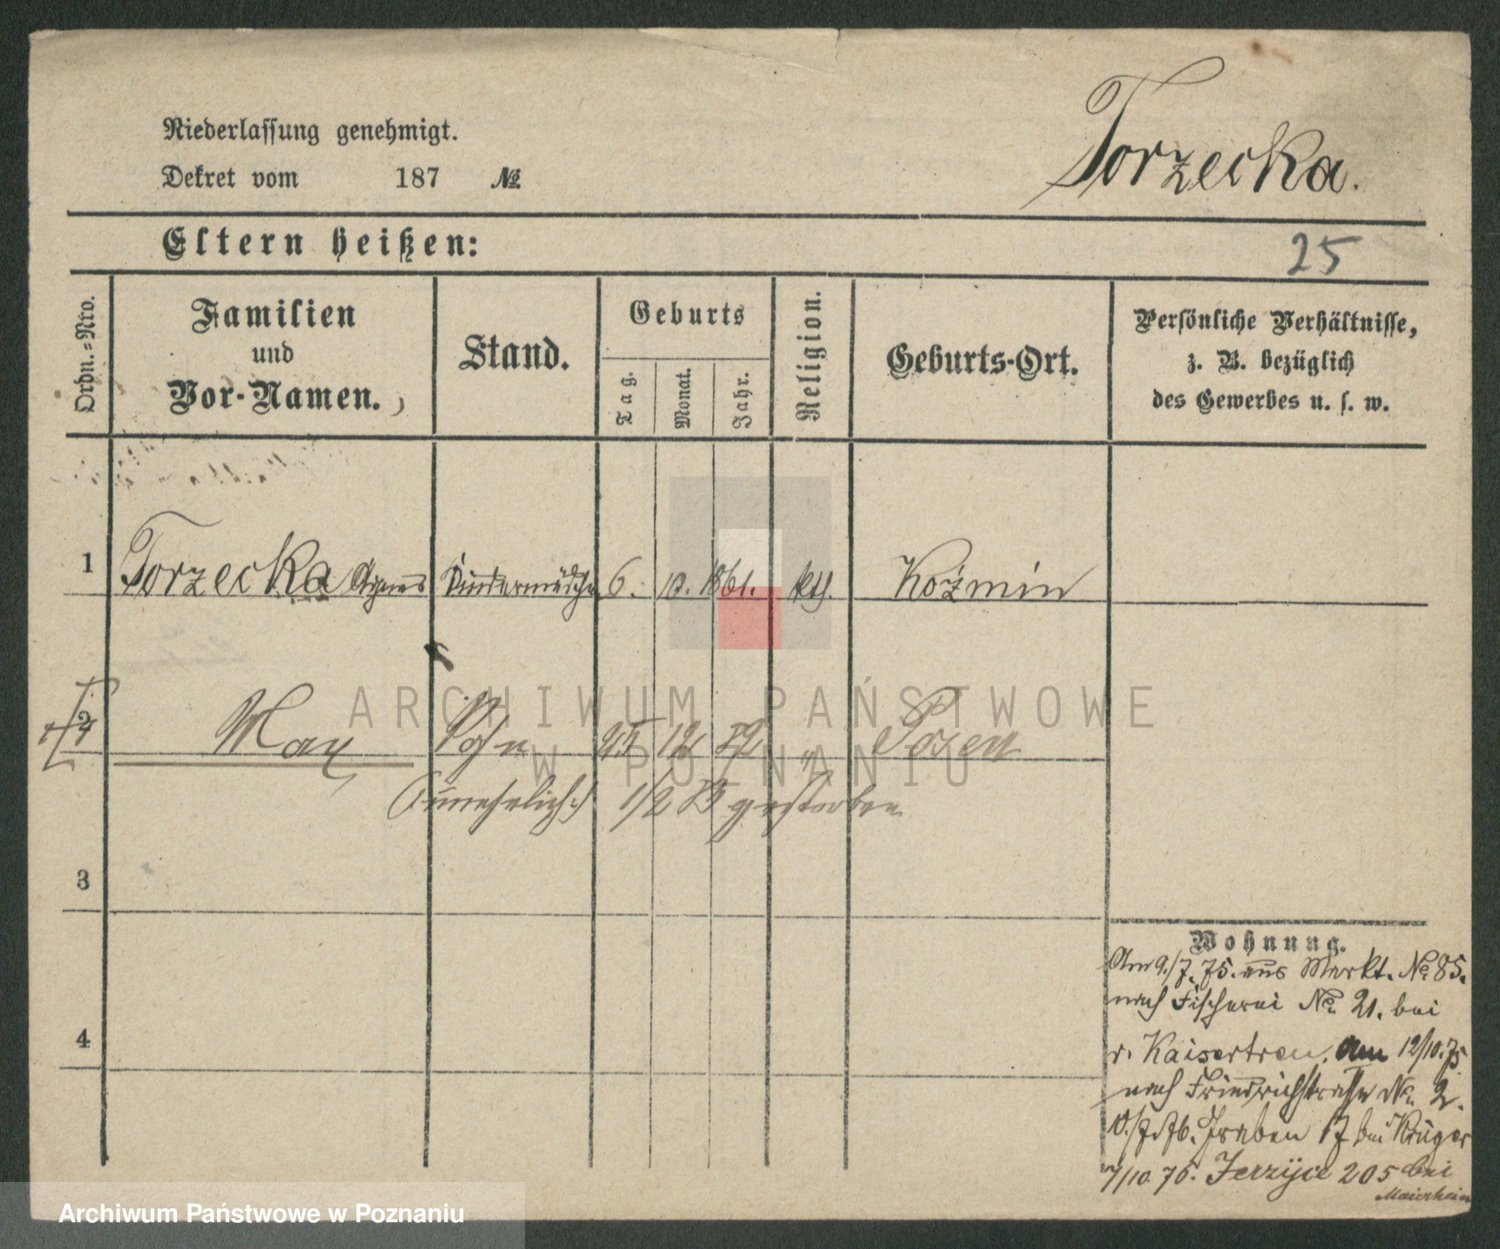 Niederlassung genehmigt.
Dekret vom 187 №
Torzecka.
Eltern heißen:
25
Ordn.-Nro.
Familien
und
Vor-Namen.
Stand.
Geburts
Tag.
Monat.
Jahr.
Religion.
Geburts-Ort.
Persönliche Verhältnisse,
z. B. bezüglich
des Gewerbes u. s. w.
1 Torzecka Agnes Kindermädchen 6. 10. 1861. kth. Koźmin
2 Max Sohn Posen
(: unehelich :) 1/2 gestorben
3
4
Wohnung.
Am 9./7. 75. aus Markt. No 85.
nach Fischerei No 21. bei
v. Kaisertreu. Am 12/10. 75
nach Friedrichstraße No. 2.
10./7. 76. Graben 17 bei Krüger
7/10. 76. Jerzyce 205 bei
Maierheim
ARCHIWUM PAŃSTWOWE
W POZNANIU
Archiwum Państwowe w Poznaniu